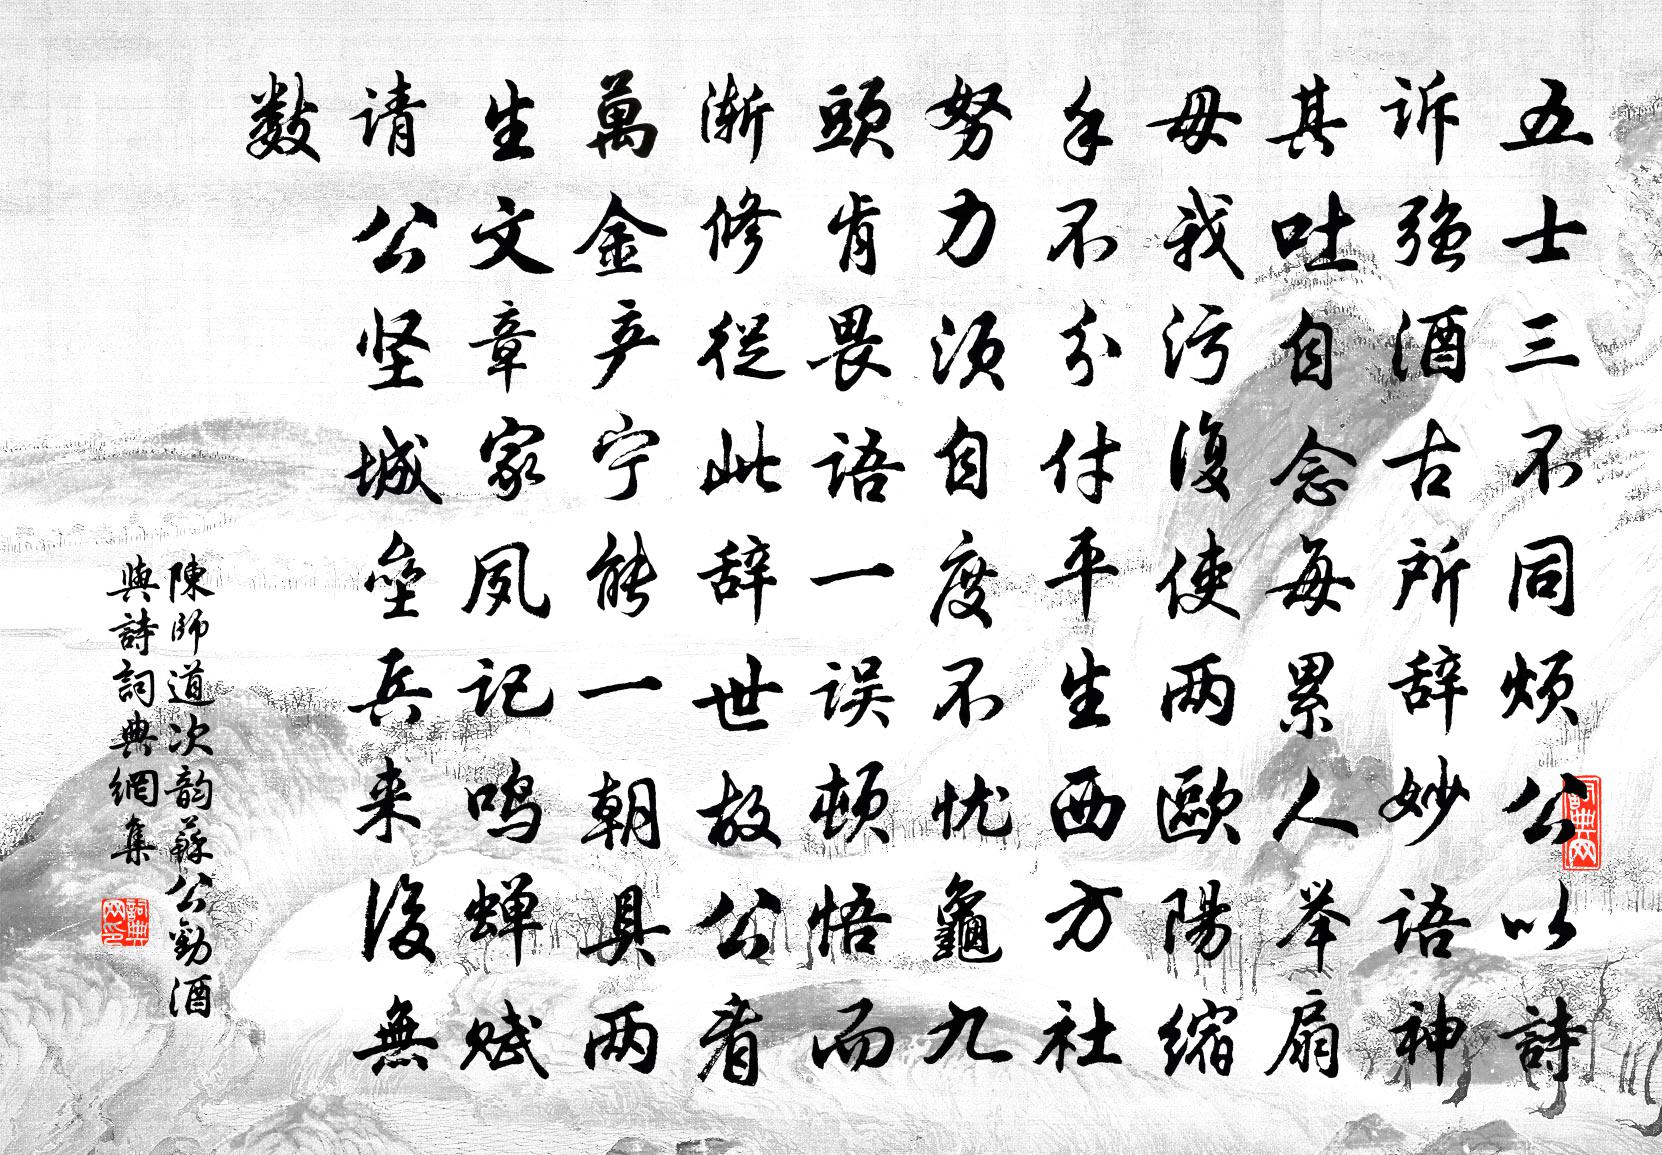 五士三不同烦公以詩
訴强酒古所辞妙语神
其吐自念每累人举扇
毋我污復使两歐陽缩
手不分付平生西方社
努力须自度不忧龜九
頭肯畏语一误頓悟而
渐修從此辞世故公看
萬金产宁能一朝具两
生文章家夙记鸣蝉赋
请公坚城壘兵来後無
数
陳師道次韵蘇公勸酒
與詩詞典網集
詞典网
詞典网